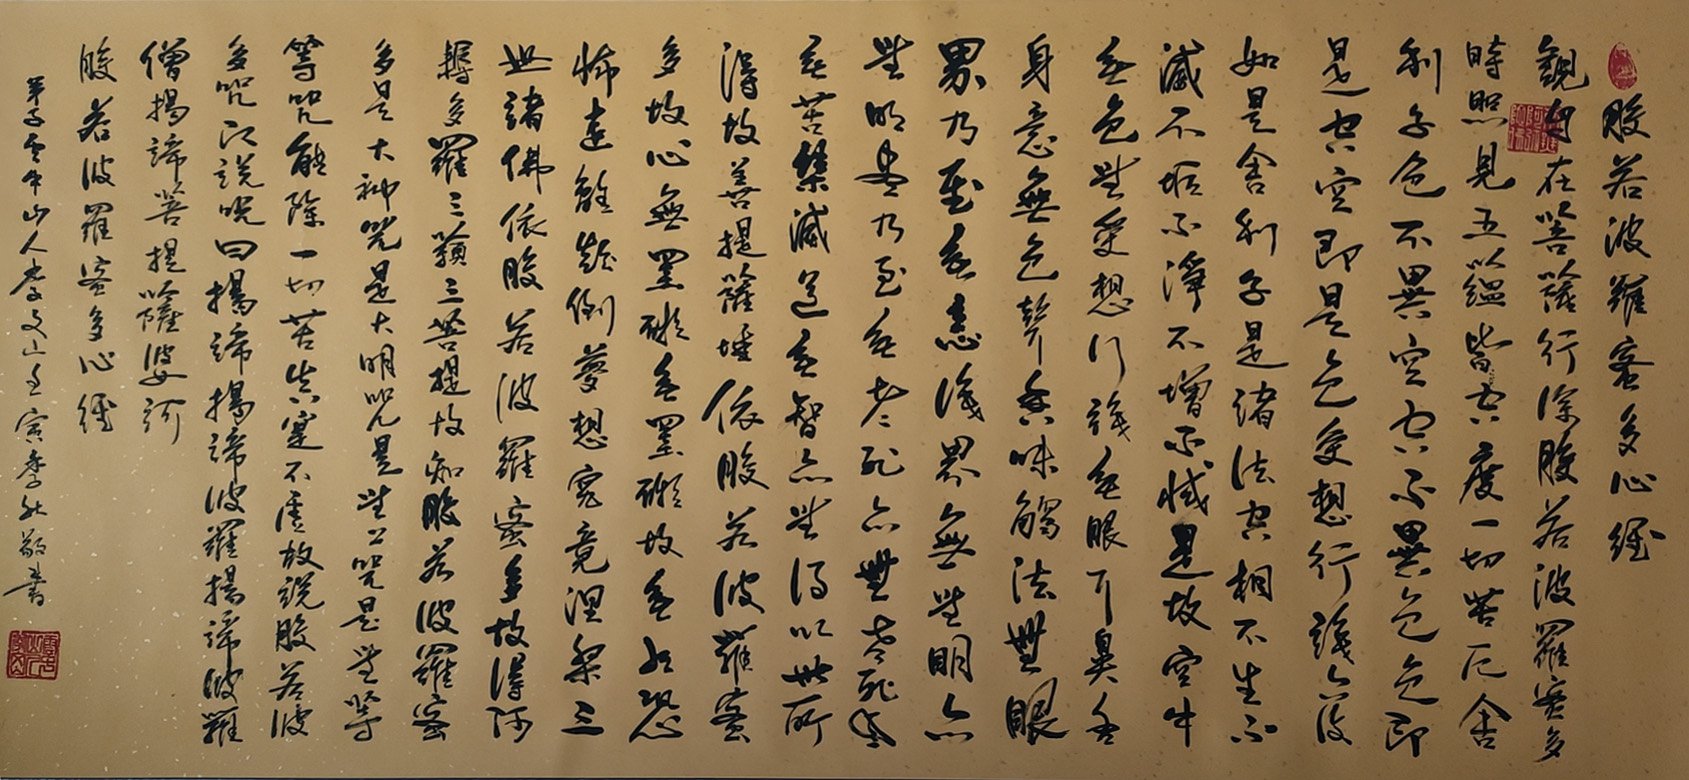 般若波羅蜜多心經
觀自在菩薩行深般若波羅蜜多
時照見五蘊皆空度一切苦厄舍
利子色不異空空不異色色即
是空空即是色受想行識亦復
如是舍利子是諸法空相不生不
滅不垢不淨不增不減是故空中
無色無受想行識無眼耳鼻舌
身意無色聲香味觸法無眼
界乃至無意識界無無明亦
無明盡乃至無老死亦無老死盡
無苦集滅道無智亦無得以無所
得故菩提薩埵依般若波羅蜜
多故心無罣礙無罣礙故無有恐
怖遠離顛倒夢想究竟涅槃三
世諸佛依般若波羅蜜多故得阿
耨多羅三藐三菩提故知般若波羅蜜
多是大神咒是大明咒是無上咒是無等
等咒能除一切苦真實不虛故說般若波
多咒即說咒曰揭諦揭諦波羅揭諦波羅
僧揭諦菩提薩婆訶
般若波羅蜜多心經
弟子雲中山人李文山壬寅季秋敬書